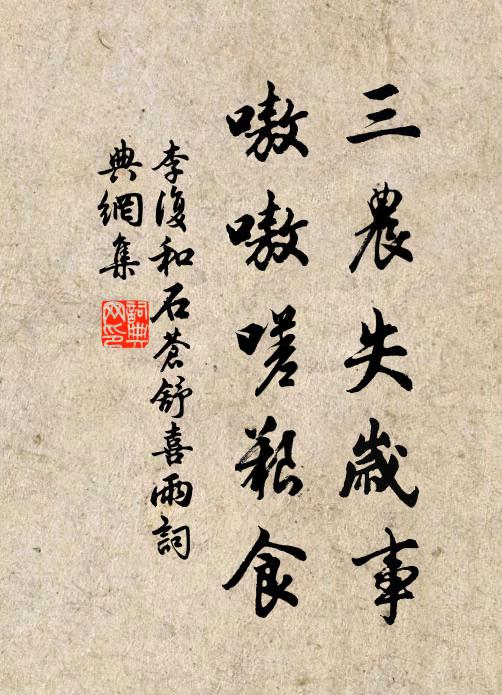 三農失歲事
嗷嗷嗟艱食
李復和石蒼舒喜雨詞
典網集
詞典网印